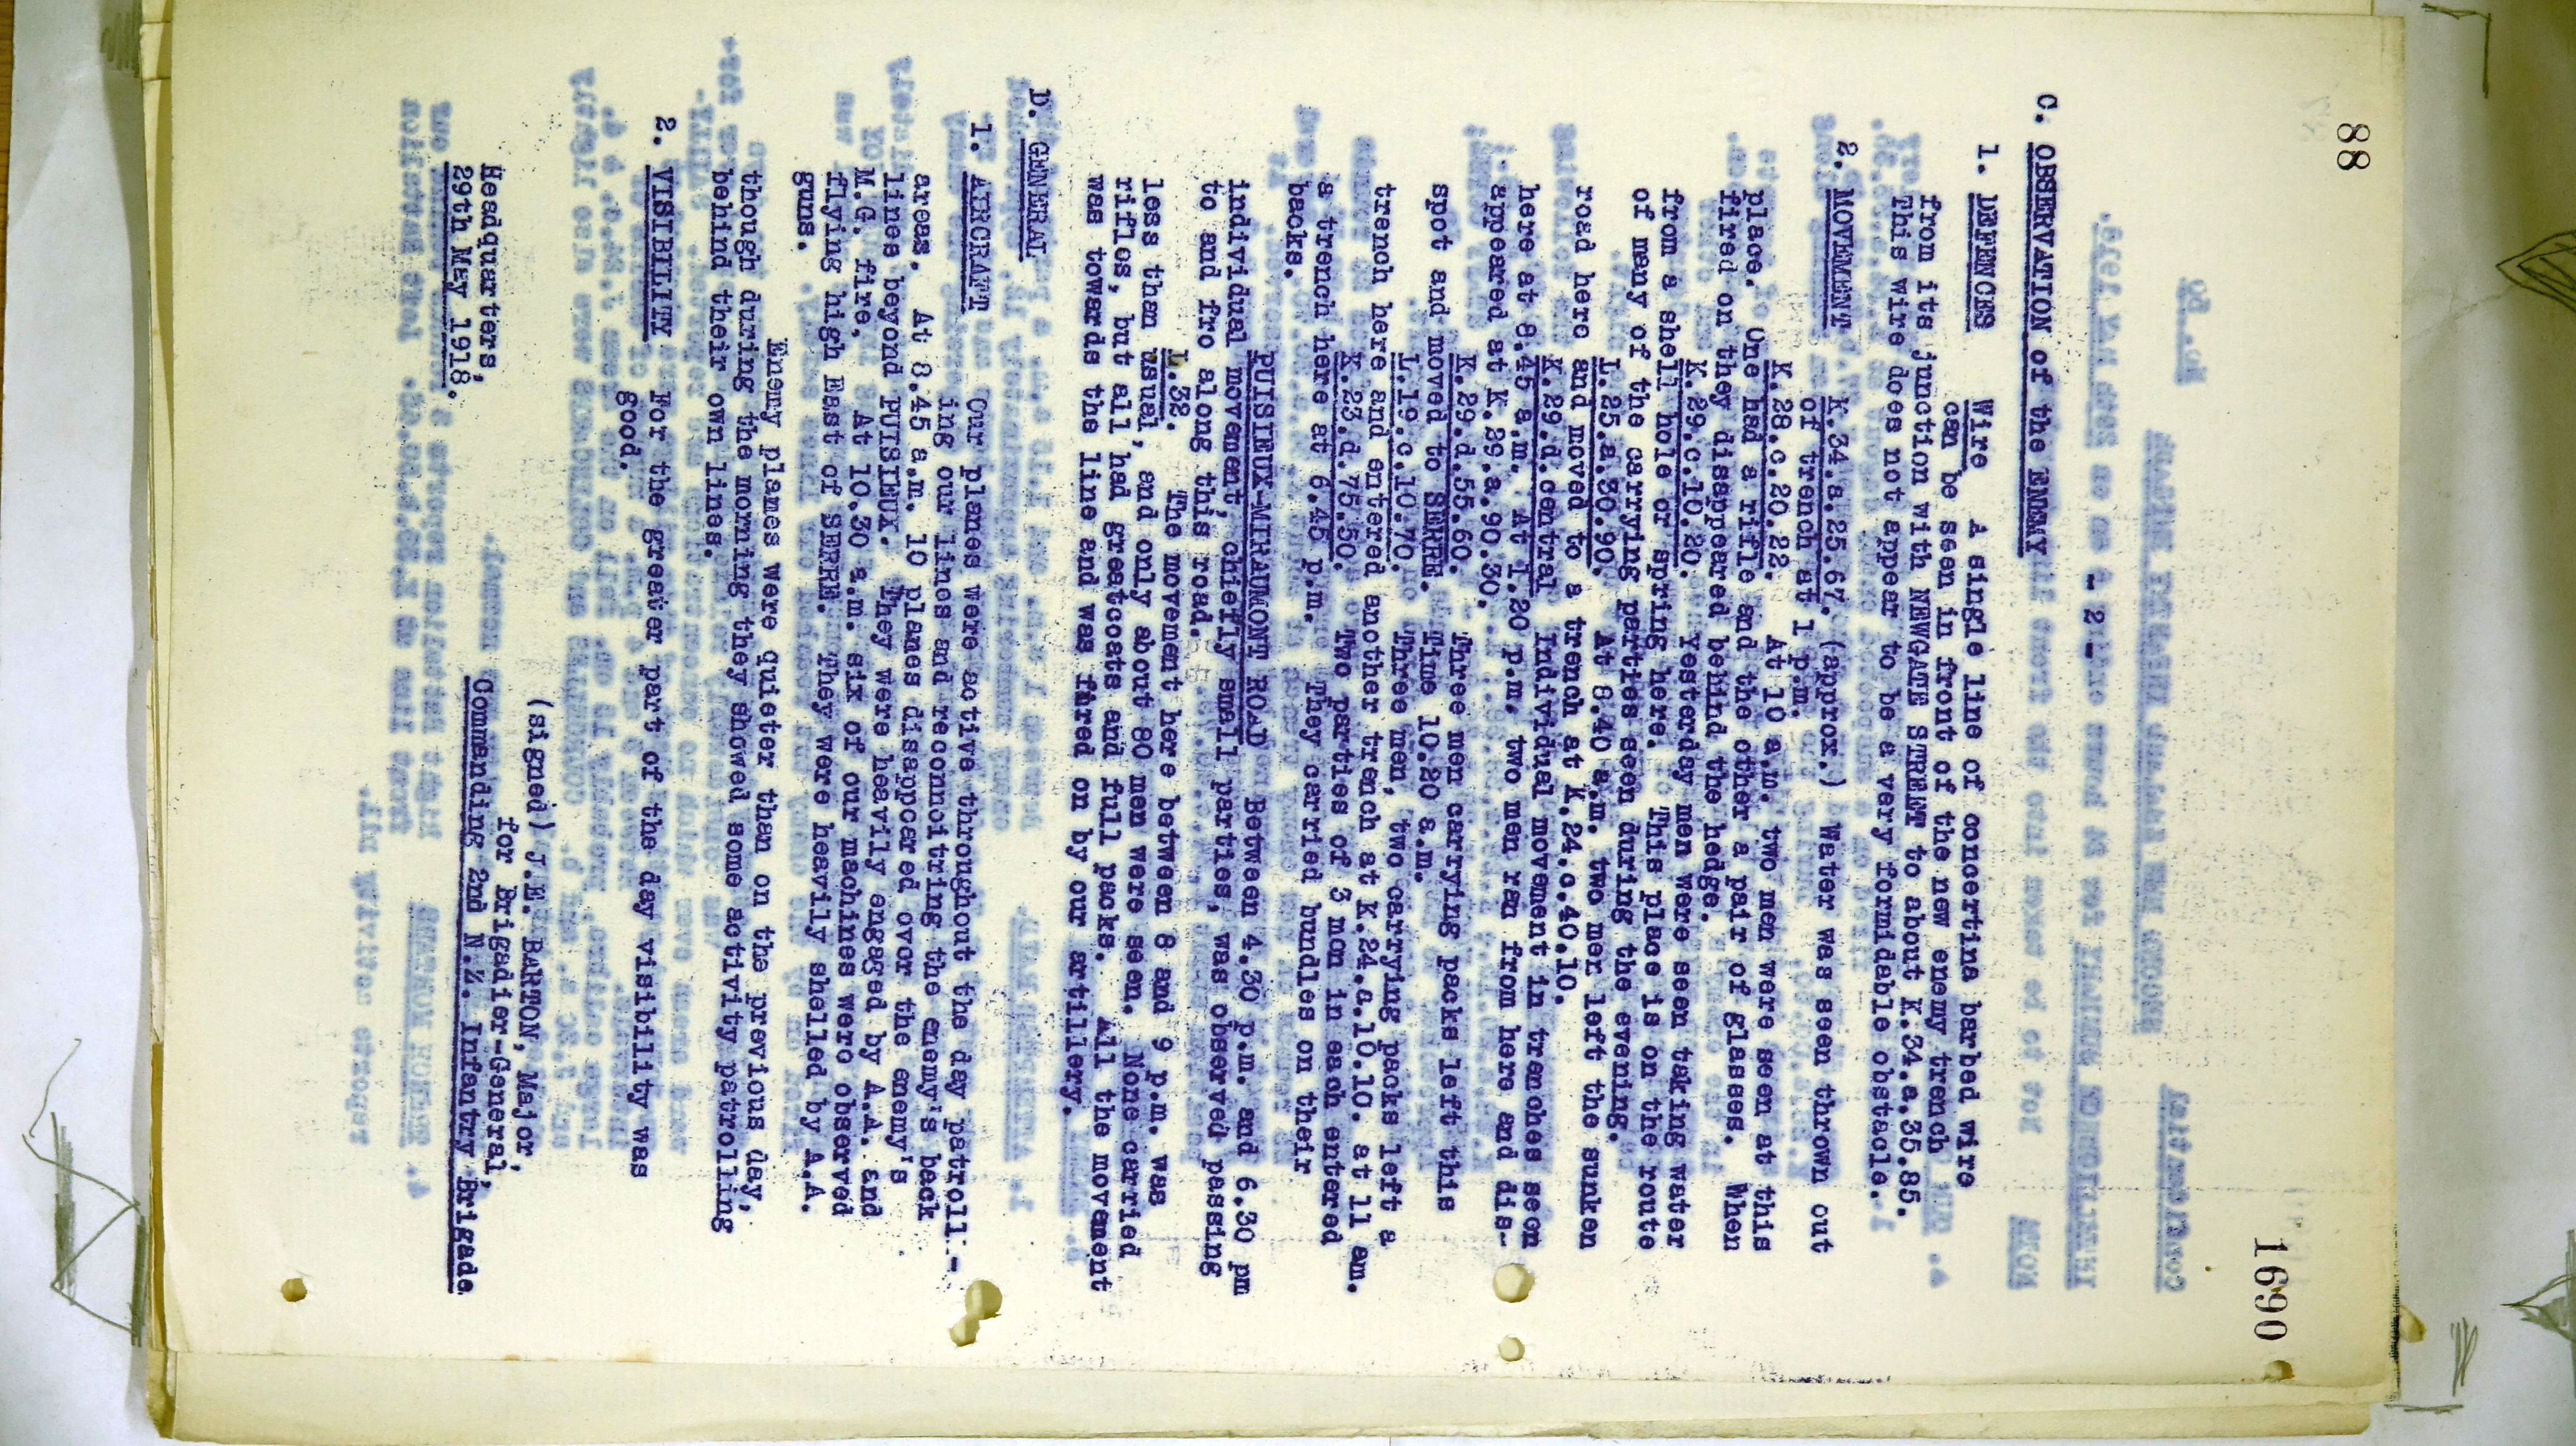 88
1690
- 2 -
C. OBSERVATION of the ENEMY
1. DEFENCES Wire A single line of concertina barbed wire
can be seen in front of the new enemy trench
from its junction with NEWGATE STREET to about K.34.a.35.85.
This wire does not appear to be a very formidable obstacle.
2. MOVEMENT K.34.a.25.67. (approx.) Water was seen thrown out
of trench at 1 p.m.
K.28.c.20.22. At 10 a.m. two men were seen at this
place. One had a rifle and the other a pair of glasses. When
fired on they disappeared behind the hedge.
K.29.c.10.20. Yesterday men were seen taking water
from a shell hole or spring here. This place is on the route
of many of the carrying parties seen during the evening.
L.25.a.30.90. At 8.40 a.m. two men left the sunken
road here and moved to a trench at K.24.c.40.10.
K.29.d.central Individual movement in trenches seen
here at 8.45 a.m. At 1.20 p.m. two men ran from here and dis-
appeared at K.29.a.90.30.
K.29.d.55.60. Three men carrying packs left this
spot and moved to SERRE. Time 10.20 a.m.
L.19.c.10.70. Three men, two carrying packs left a
trench here and entered another trench at K.24.a.10.10. at 11 am.
K.23.d.75.50. Two parties of 3 men in each entered
a trench here at 6.45 p.m. They carried bundles on their
backs.
PUISIEUX-MIRAUMONT ROAD Between 4.30 p.m. and 6.30 pm
individual movement, chiefly small parties, was observed passing
to and fro along this road.
L.32. The movement here between 8 and 9 p.m. was
less than usual, and only about 80 men were seen. None carried
rifles, but all had greatcoats and full packs. All the movement
was towards the line and was fired on by our artillery.
D. GENERAL
1. AIRCRAFT Our planes were active throughout the day patroll-
ing our lines and reconnoitring the enemy's back
areas. At 8.45 a.m. 10 planes disappeared over the enemy's
lines beyond PUISIEUX. They were heavily engaged by A.A. and
M.G. fire. At 10.30 a.m. six of our machines were observed
flying high East of SERRE. They were heavily shelled by A.A.
guns.
Enemy planes were quieter than on the previous day,
though during the morning they showed some activity patrolling
behind their own lines.
2. VISIBILITY For the greater part of the day visibility was
good.
(signed) J.E. BARTON, Major,
for Brigadier-General,
Headquarters,
Commanding 2nd N.Z. Infantry Brigade
29th May 1918.